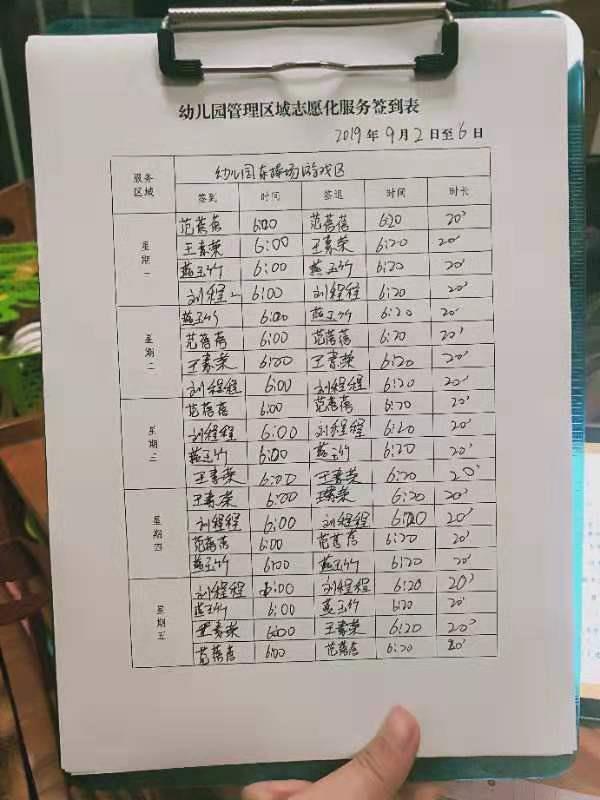 幼儿园管理区域志愿化服务签到表
2019年9月2日至6日
服务区域 幼儿园东操场游戏区
签到 时间 签退 时间 时长
星期一
范蓓蓓 6:00 范蓓蓓 6:20 20'
王素荣 6:00 王素荣 6:20 20'
燕玉竹 6:00 燕玉竹 6:20 20'
刘程程 6:00 刘程程 6:20 20'
星期二
燕玉竹 6:00 燕玉竹 6:20 20'
范蓓蓓 6:00 范蓓蓓 6:20 20'
王素荣 6:00 王素荣 6:20 20'
刘程程 6:00 刘程程 6:20 20'
星期三
范蓓蓓 6:00 范蓓蓓 6:20 20'
刘程程 6:00 刘程程 6:20 20'
燕玉竹 6:00 燕玉竹 6:20 20'
王素荣 6:00 王素荣 6:20 20'
星期四
王素荣 6:00 王素荣 6:20 20'
刘程程 6:00 刘程程 6:20 20'
范蓓蓓 6:00 范蓓蓓 6:20 20'
燕玉竹 6:00 燕玉竹 6:20 20'
星期五
刘程程 6:00 刘程程 6:20 20'
燕玉竹 6:00 燕玉竹 6:20 20'
王素荣 6:00 王素荣 6:20 20'
范蓓蓓 6:00 范蓓蓓 6:20 20'